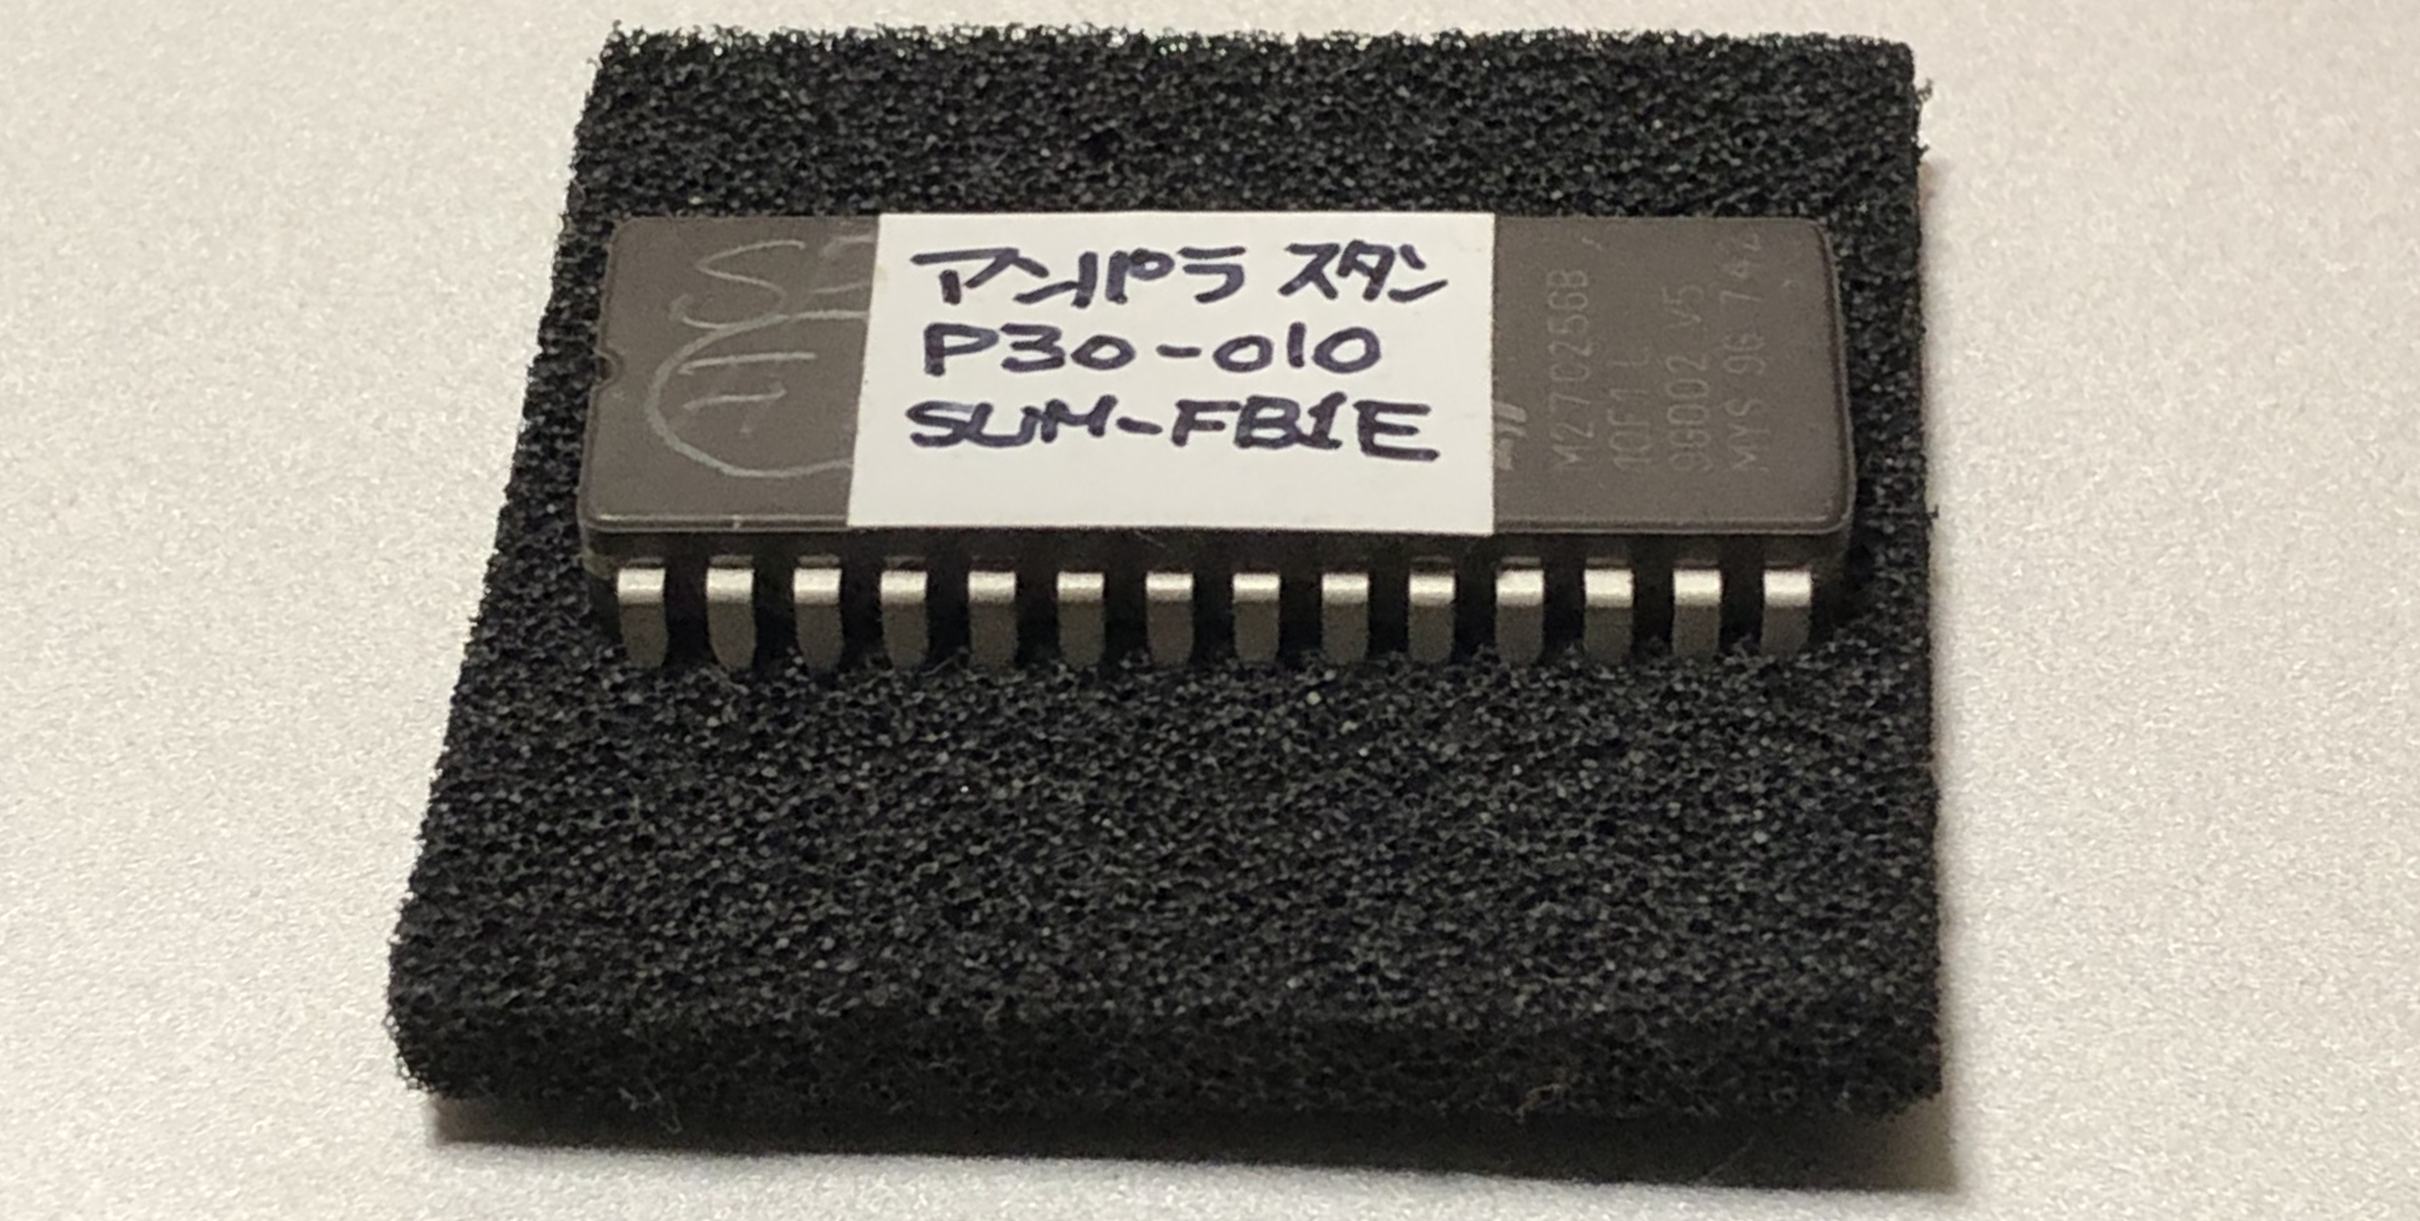 アンパラ スタン
P30-010
SUM-FB1E
M27C256B
10F1 L
9G002 V5
MYS 9G 742